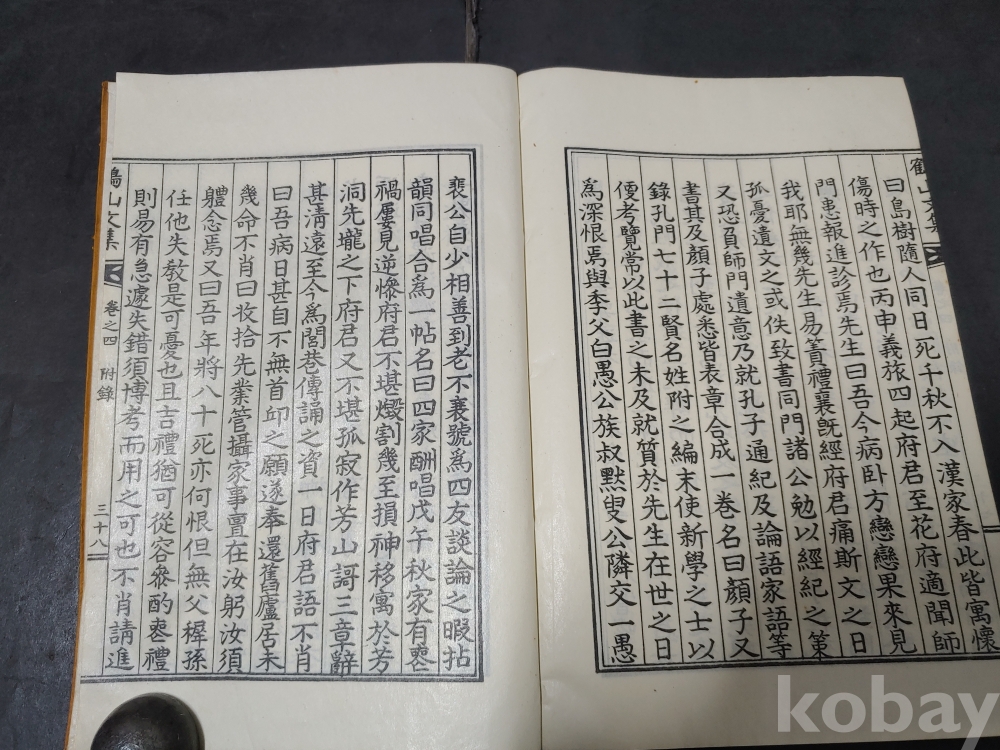 鶴山文集
曰島樹隨人同日死千秋不入漢家春此皆寓懷
傷時之作也丙申義旅四起府君至花府適聞師
門患報進診焉先生曰吾今病卧方戀戀果來見
我耶無幾先生易簀禮襄旣經府君痛斯文之日
孤憂遺文之或佚致書同門諸公勉以經紀之策
又恐負師門遺意乃就孔子通紀及論語家語等
書其及顏子處悉皆表章合成一卷名曰顏子又
錄孔門七十二賢名姓附之編末使新學之士以
便考覽常以此書之未及就質於先生在世之日
爲深恨焉與季父白愚公族叔默叟公隣交一愚
裵公自少相善到老不衰號爲四友談論之暇拈
韻同唱合爲一帖名曰四家酬唱戊午秋家有喪
禍屢見逆慘府君不堪燬割幾至損神移寓於芳
洞先壠之下府君又不堪孤寂作芳山謌三章辭
甚淸遠至今爲閭巷傳誦之資一日府君語不肖
曰吾病日甚自不無首邱之願遂奉還舊廬居未
幾命不肖曰收拾先業管攝家事亶在汝躬汝須
軆念焉又曰吾年將八十死亦何恨但無父穉孫
任他失敎是可憂也且吉禮猶可從容叅酌喪禮
則易有急遽失錯須博考而用之可也不肖請進
鶴山文集 卷之四 附錄 三十八
kobay